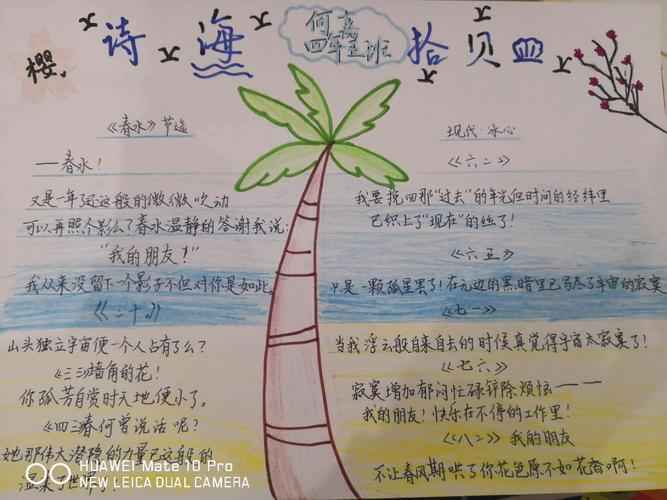 樱 诗 海 拾贝 四
何亮
四年五班
《春水》节选
一春水！
又是一年了还这般的微微吹动
可以再照个影么了春水温静的答谢我说:
“我的朋友！”
我从来没留下一个影子不但对你是如此,
《二十》
山头独立宇宙便一个人占有了么?
《三三墙角的花！
你孤芳自赏时天地便小了。
《四三春何曾说话呢?
她那伟大潜隐的力量已这般的
现代:冰心
《六二》
我要挽回那“过去”的年光但时间的经纬里
已织上了“现在”的丝了！
《六五》
只是一颗孤星罢了！在无边的黑暗里已写尽了宇宙的寂寞
《七一》
当我浮云般自来自去的时候真觉得宇宙太寂寞了！
《七六》
寂寞增加郁闷忙碌铲除烦恼——
我的朋友！快乐在不停的工作里！
《八二》我的朋友
不让春风期哄了你花色原不如花香啊！
HUAWEI Mate 10 Pro
NEW LEICA DUAL CAMERA